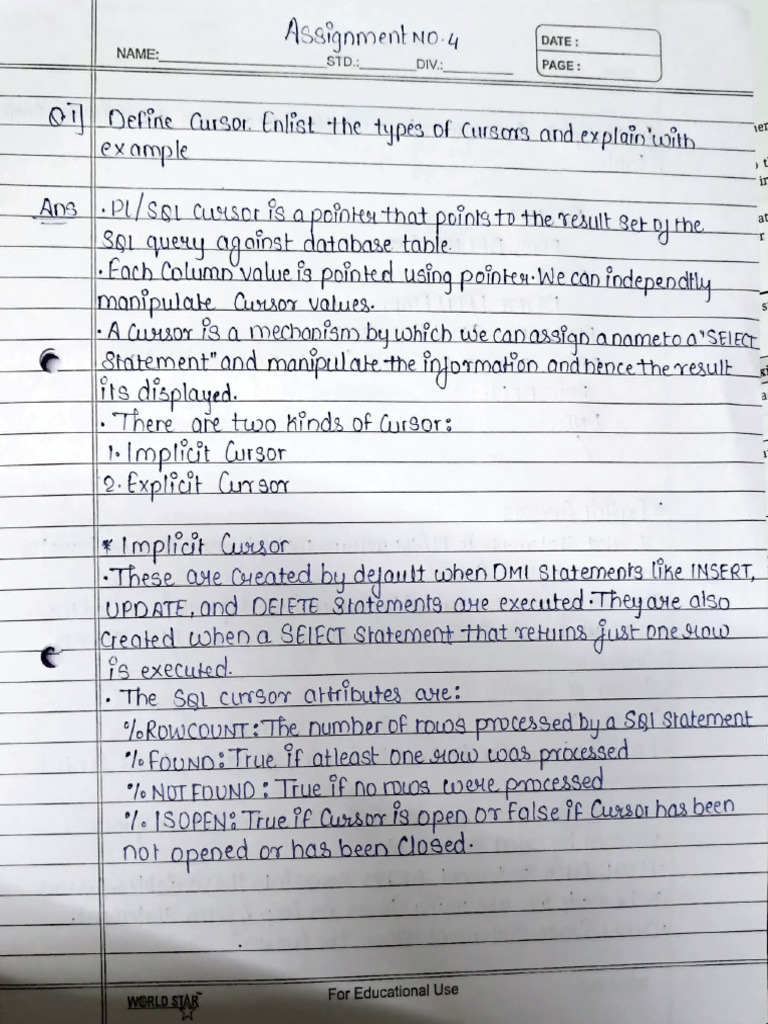 Assignment NO. 4
NAME: STD.: DIV.:
DATE :
PAGE :
Q1] Define Cursor. Enlist the types of cursors and explain with
example
Ans . Pl/SQl cursor is a pointer that points to the result set of the
SQl query against database table.
. Each Column value is pointed using pointer. We can independtly
manipulate Cursor values.
. A Cursor is a mechanism by which we can assign a name to a "SELECT
Statement" and manipulate the information and hence the result
its displayed.
. There are two kinds of Cursor:
1. Implicit Cursor
2. Explicit Cursor
* Implicit Cursor
. These are Created by default when DMl Statements like INSERT,
UPDATE, and DElETE Statements are executed. They are also
Created when a SElECT Statement that returns just one row
is executed.
. The SQl cursor attributes are:
%ROWCOUNT: The number of rows processed by a SQl Statement
%FOUND: True if atleast one row was processed
%NOTFOUND : True if no rows were processed
%ISOPEN: True if Cursor is open or False if Cursor has been
not opened or has been Closed.
WORLD STAR
For Educational Use